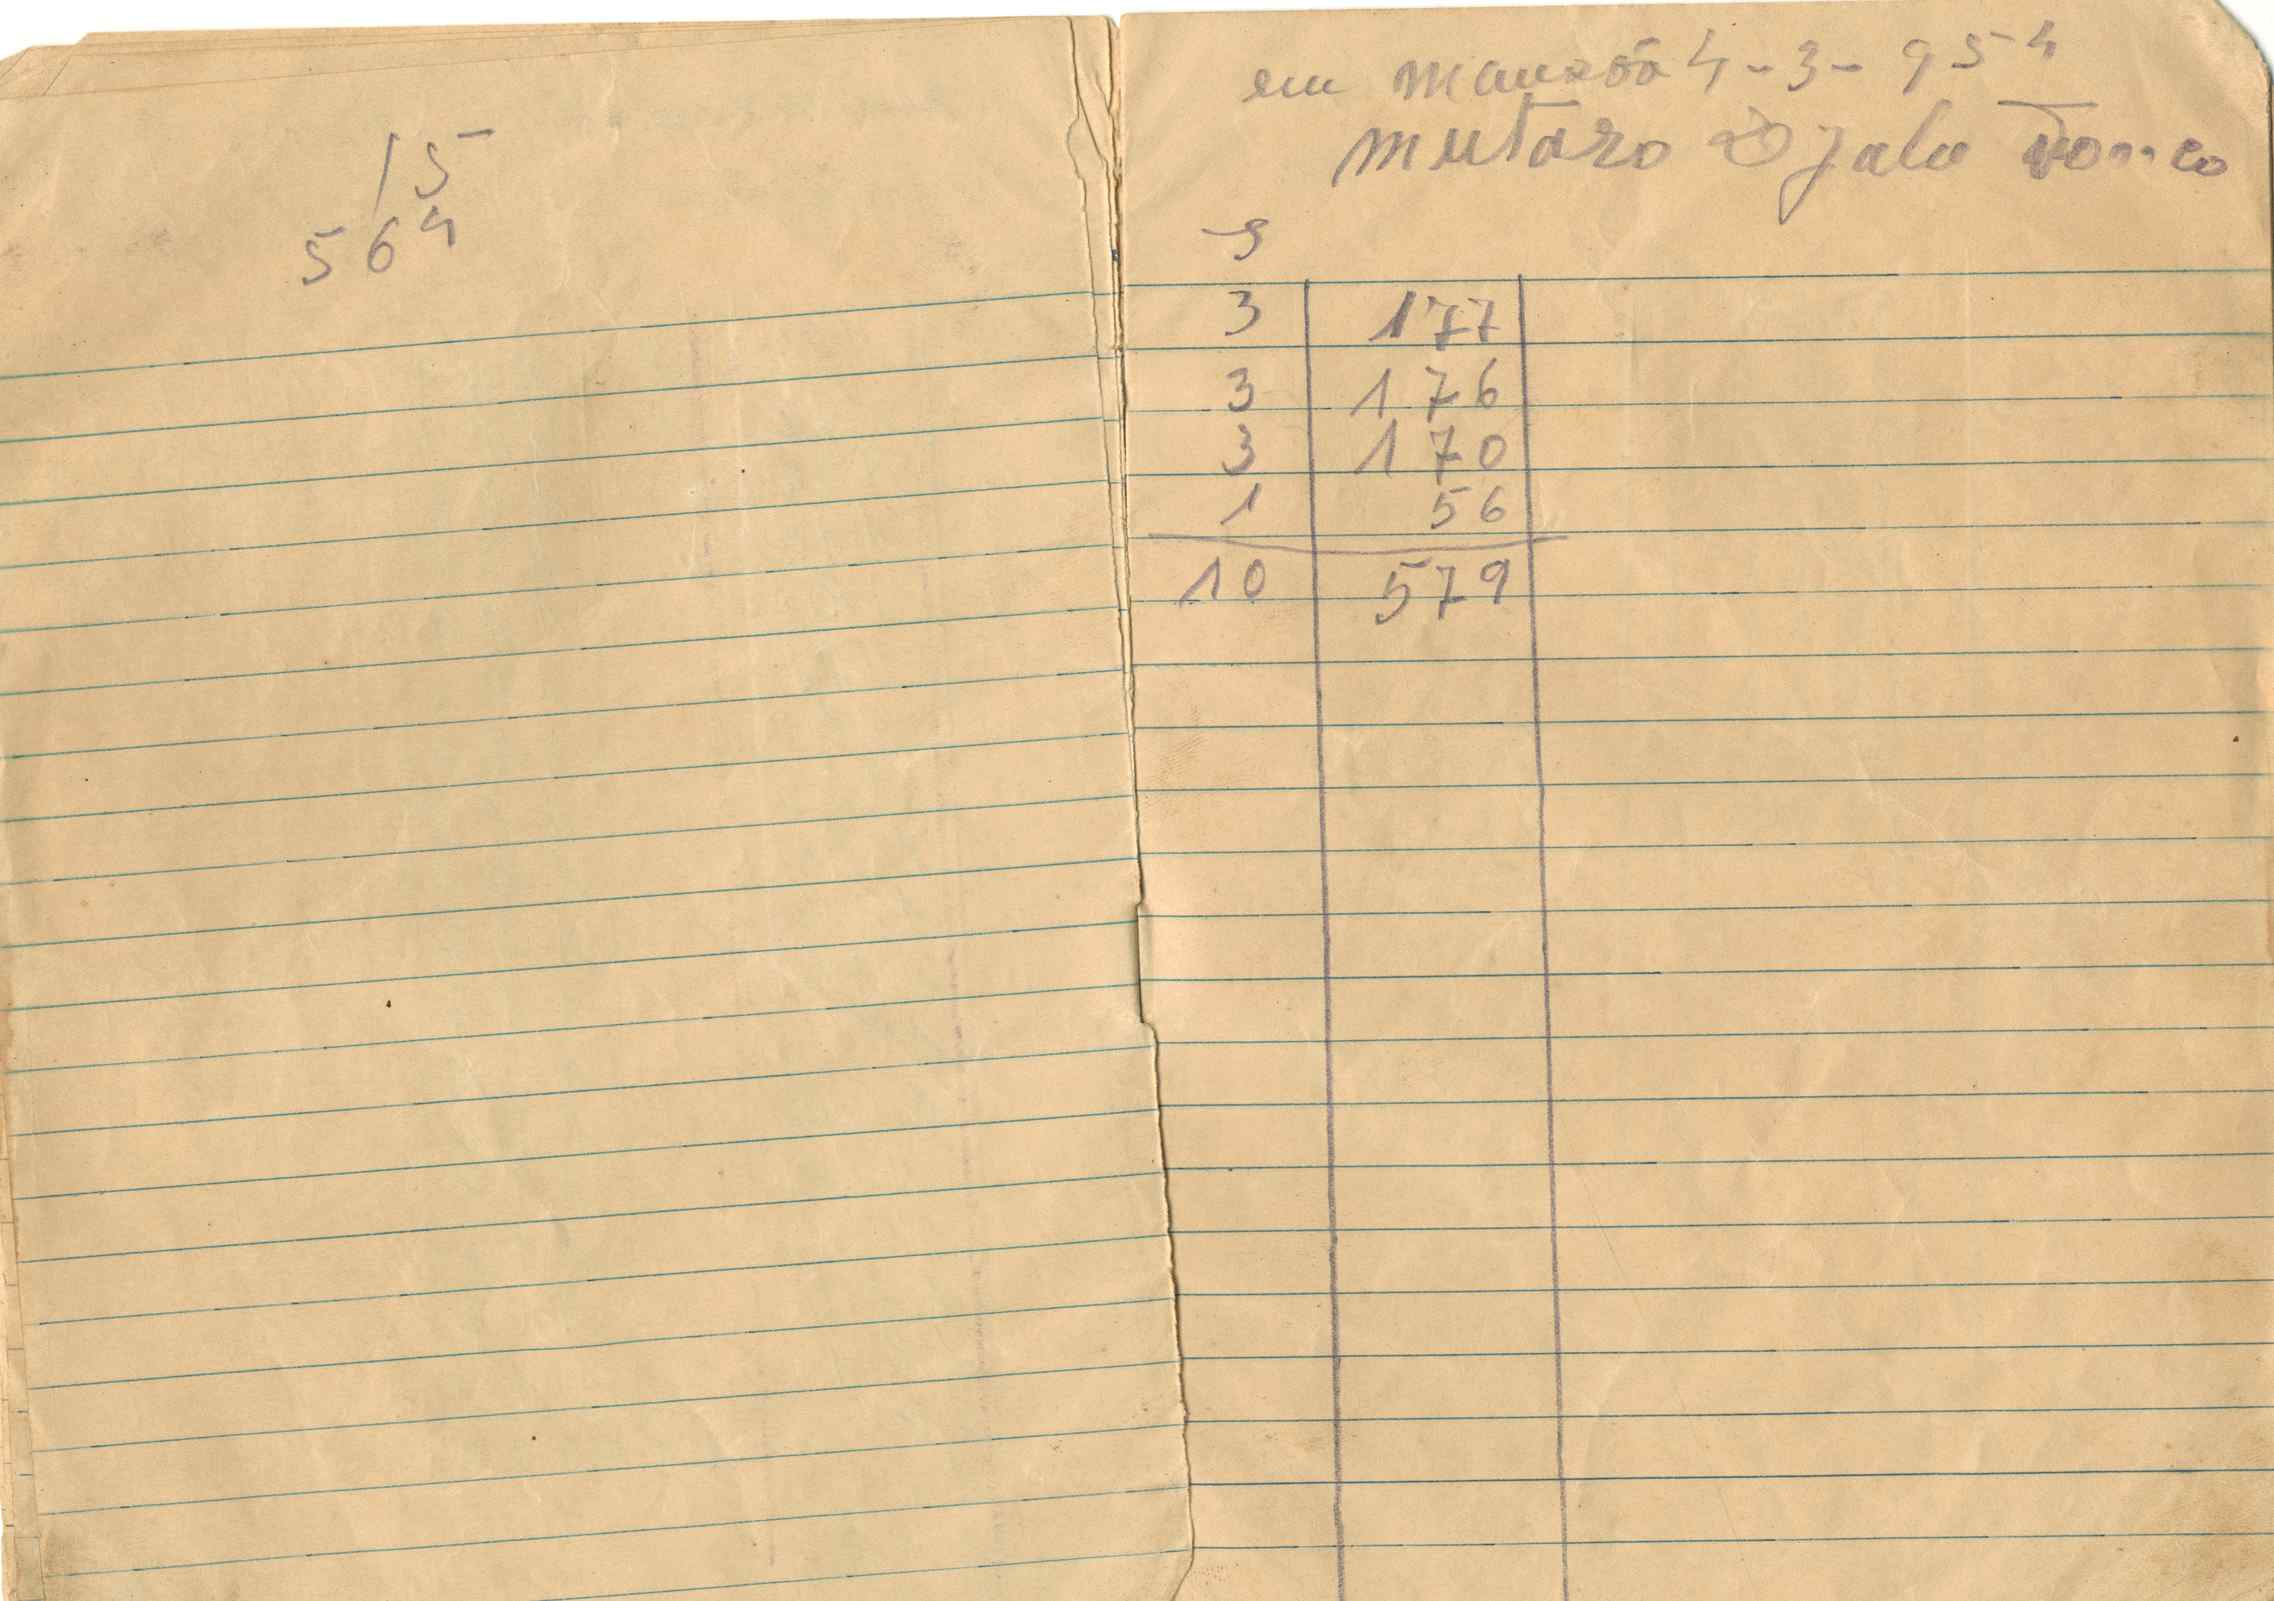 15
564
em mansôa 4-3-954
mutaro Djalo
S
3 177
3 176
3 170
1 56
10 579